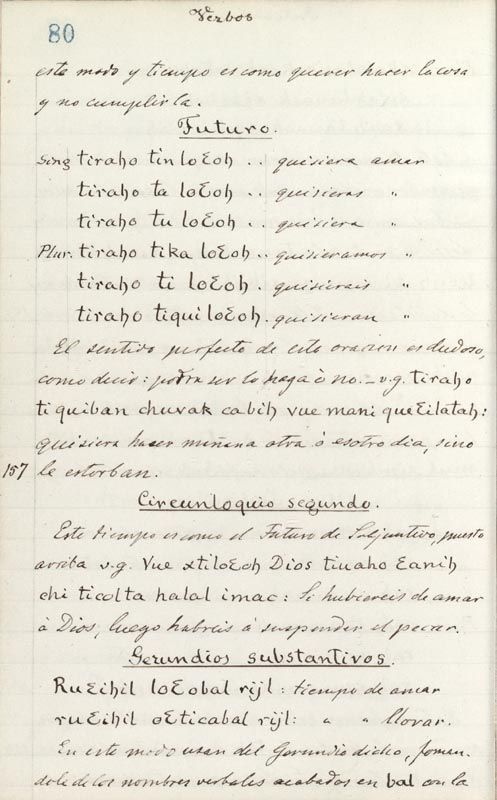 Verbos
80
este modo y tiempo es como querer hacer la cosa
y no cumplirla.
Futuro.
Sing tiraho tin loƐoh .. quisiera amar
tiraho ta loƐoh .. quisieras "
tiraho tu loƐoh .. quisiera "
Plur. tiraho tika loƐoh .. quisieramos "
tiraho ti loƐoh . quisierais "
tiraho tiqui loƐoh . quisieran "
El sentido perfecto de esta oracion es dudoso,
como decir: podra ser lo haga ò no. – v.g. tiraho
tiquiban chuvak cabih vue mani queƐilatah:
quisiera hacer mañana otra ó esotro dia, sino
157 le estorban.
Circunloquio segundo.
Este tiempo es como el Futuro de Subjuntivo, puesto
arriba v.g. Vue xtiloƐoh Dios tiuaho Ɛanih
chi ticolta halal imac: Si hubiereis de amar
à Dios, luego habreis á suspender el pecar.
Gerundios substantivos.
RuƐihil loƐobal rijl: tiempo de amar
ruƐihil oƐticabal rijl: " " llorar.
En este modo usan del Gerundio dicho, foman-
dole de los nombres verbales acabados en bal con la